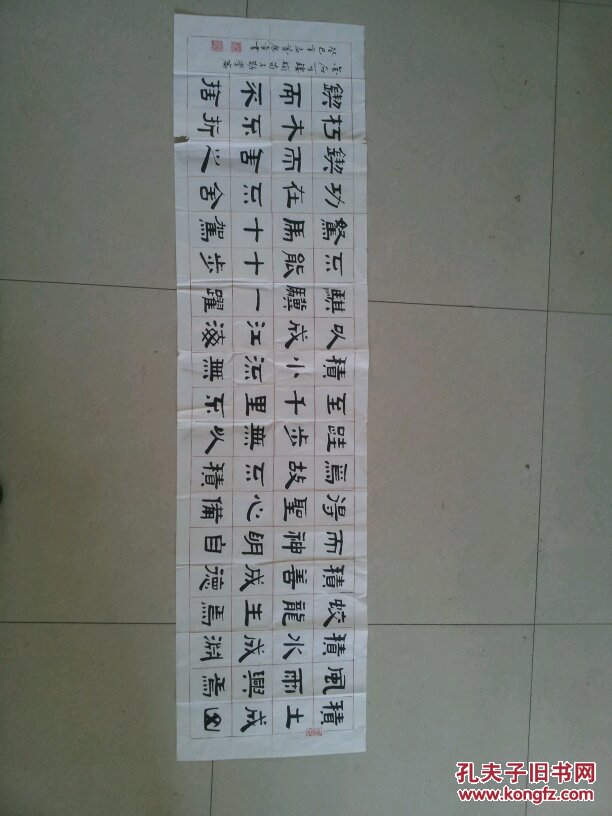 積土成山
風雨興焉
積水成淵
蛟龍生焉
積善成德
而神明自
得聖心備
焉故不積
跬步無以
至千里不
積小流無
以成江海
騏驥一躍
不能十步
駑馬十駕
功在不舍
鍥而舍之
朽木不折
鍥而不捨
金石可鏤 荀子勸學篇
癸巳年 書
孔夫子旧书网
www.kongfz.com